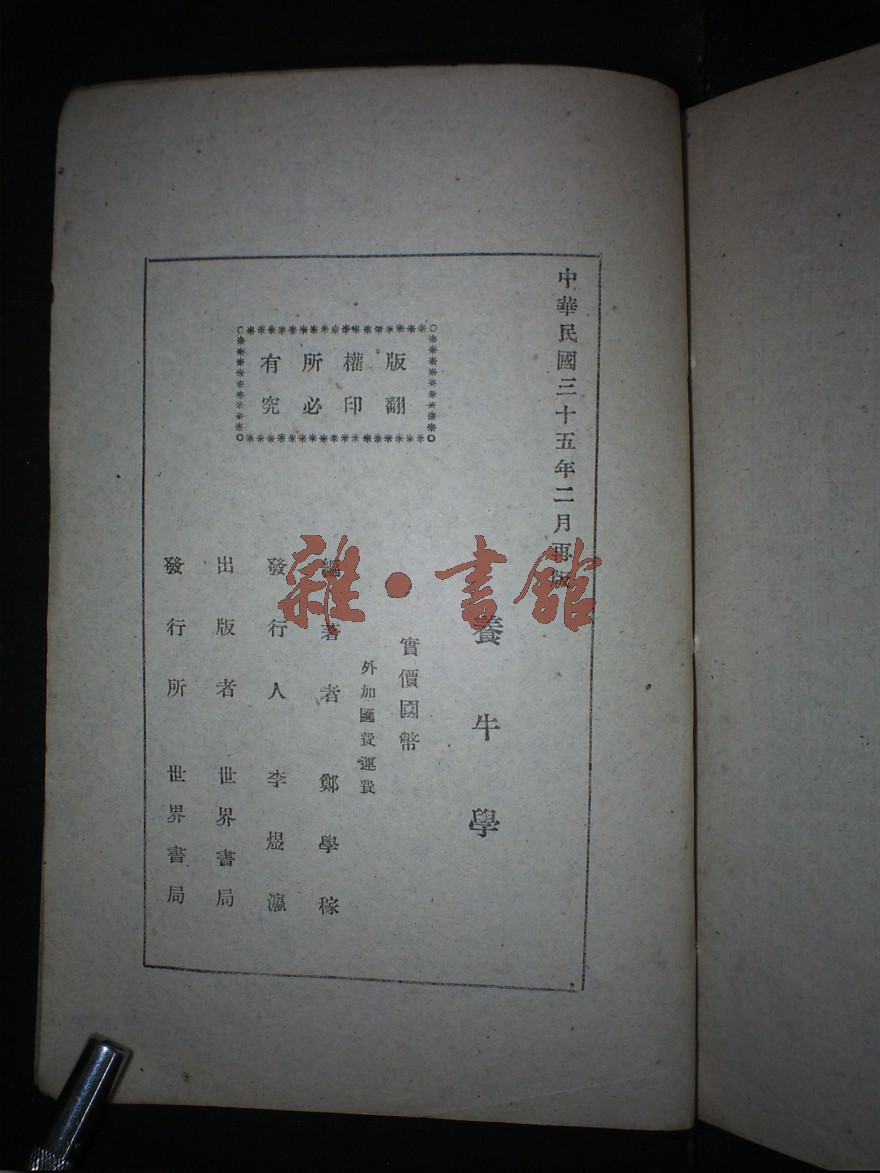 中華民國三十五年二月再版
養牛學
實價國幣
外加匯費運費
編著者 鄭學稼
發行人 李煜瀛
出版者 世界書局
發行所 世界書局
版權所有
翻印必究
雜·書館